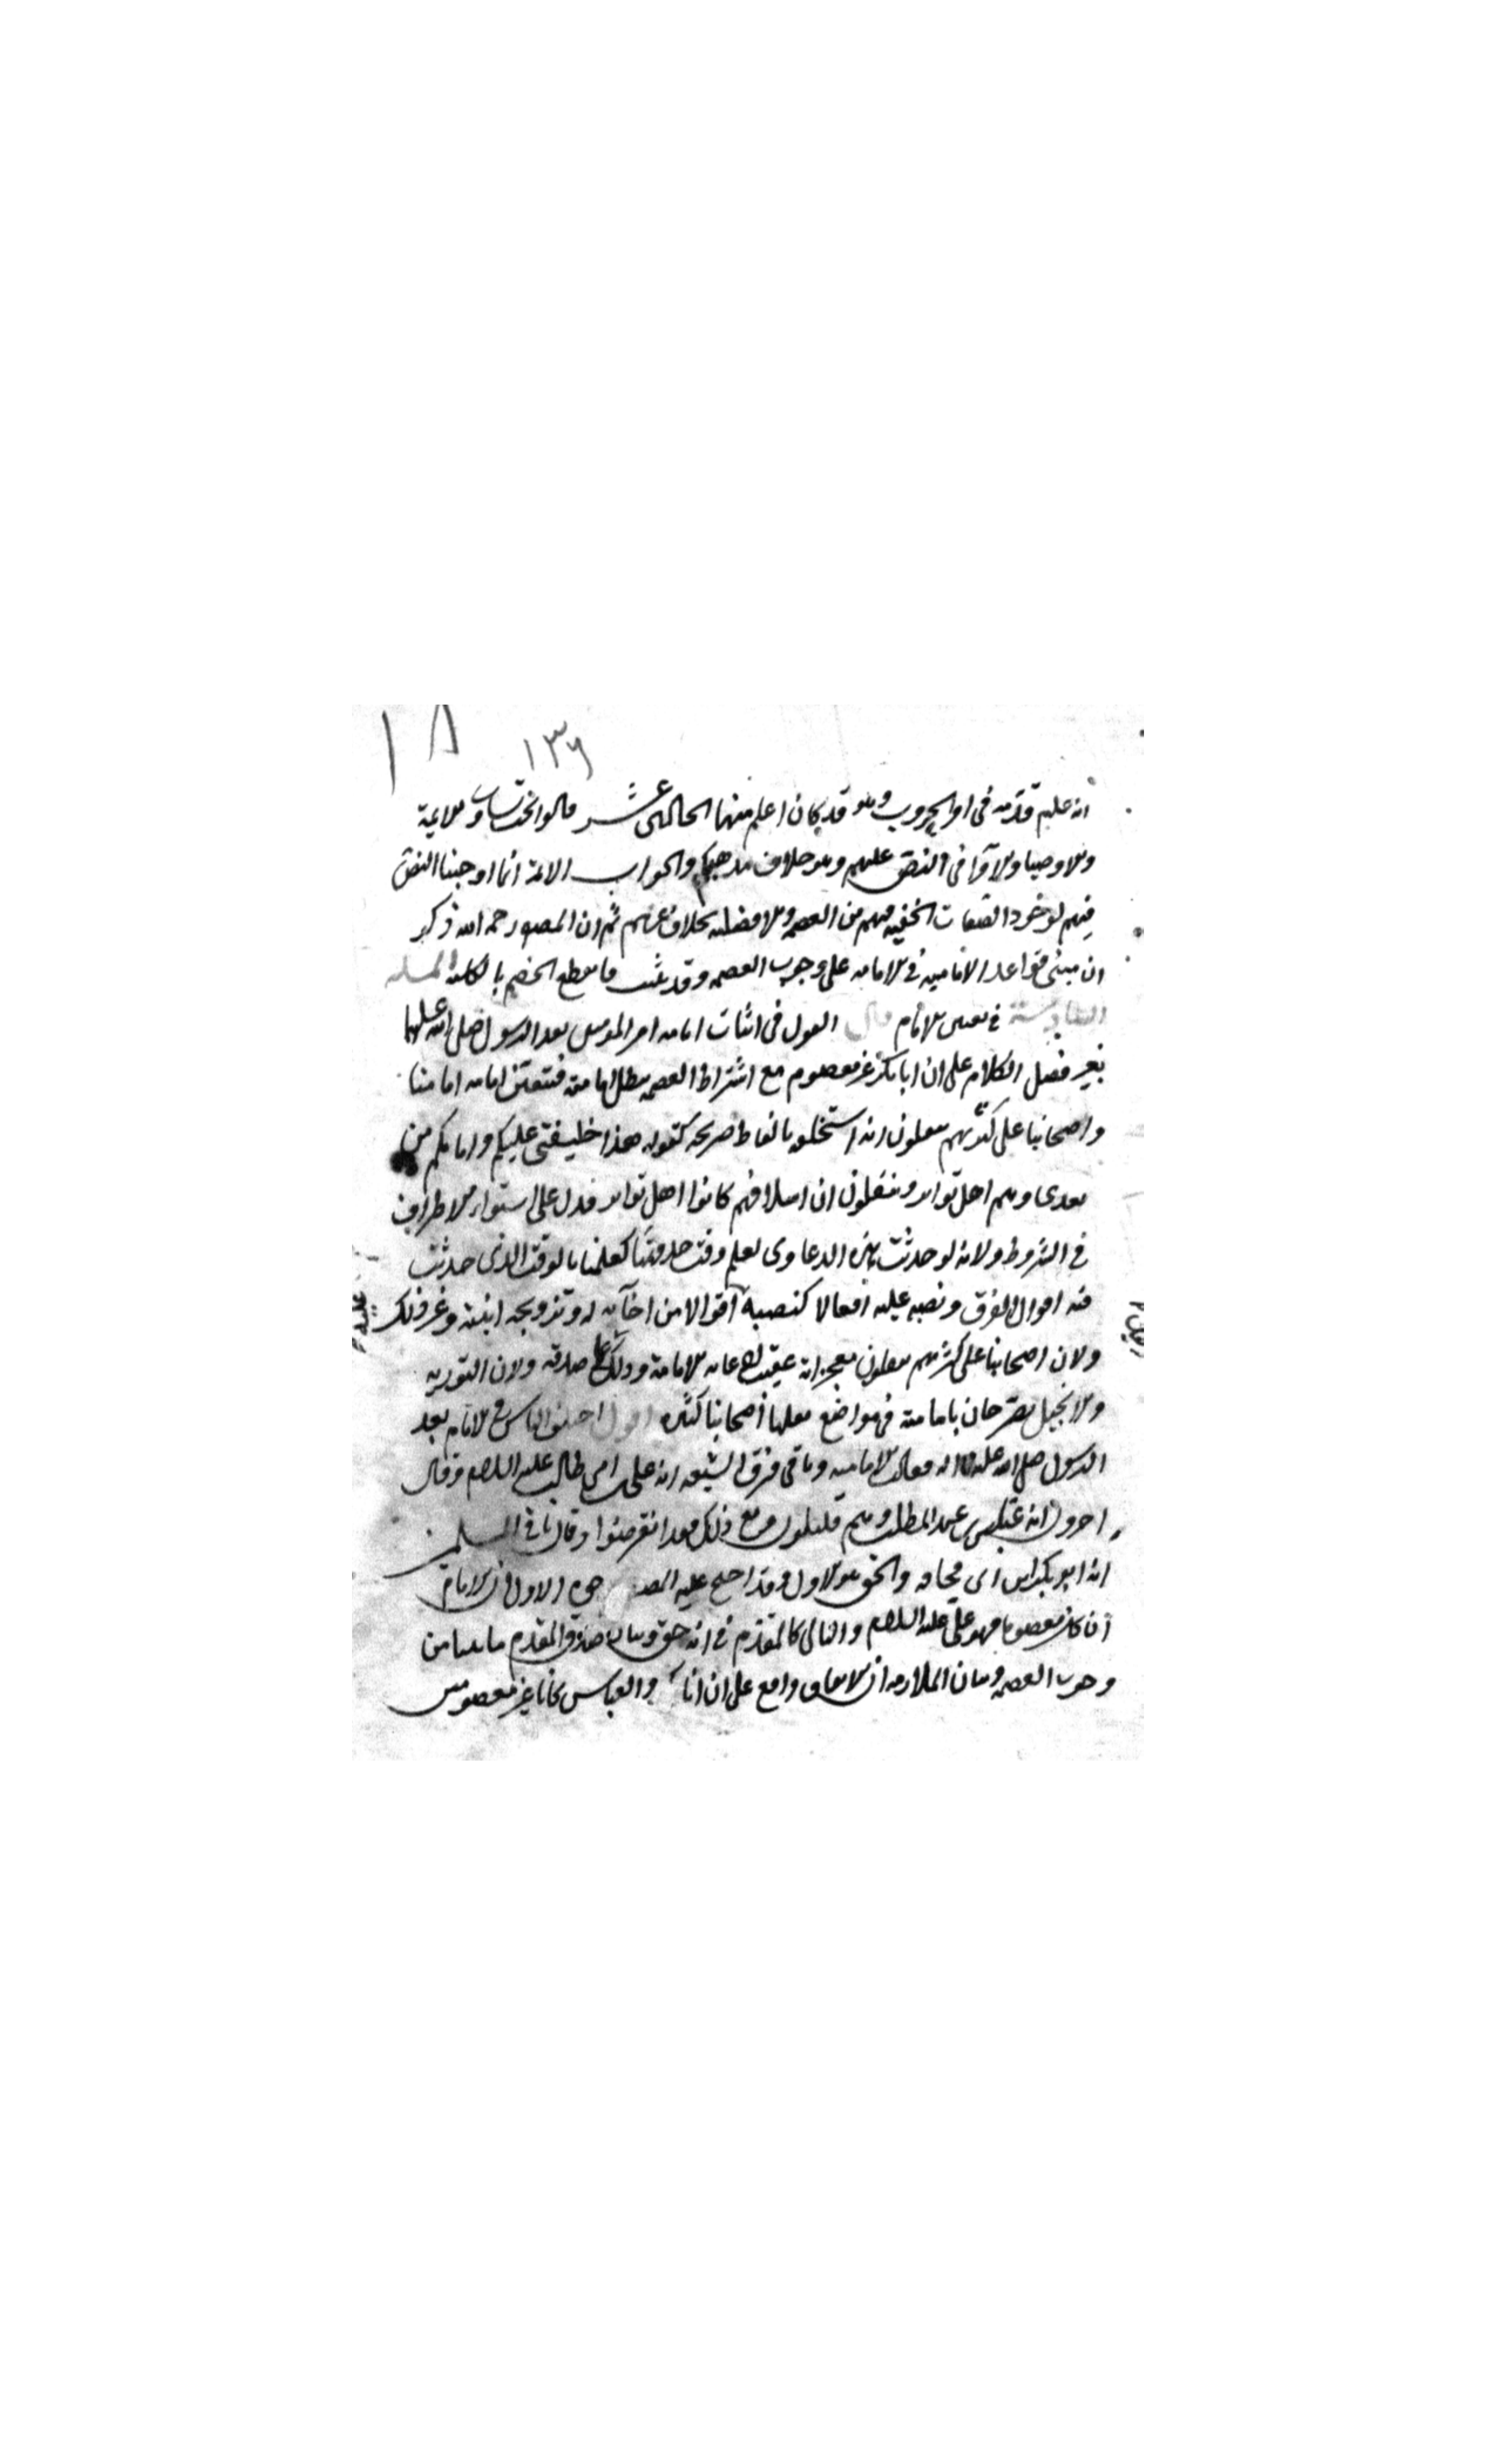 ١٨
١٣٦
انه عليم قدمه في امر الحروب وهو قد كان اعلم منهما الحادي عشر قالوا القضاة والايمة
والاوصيا والامرا في النص عليهم وهو خلاف مذهبكم والجواب الائمة انما اوجبنا النص
فيهم لوجود الصفات الخفيه فيهم من العصمه والافضليه بخلاف غيرهم ثم ان المصنف رحمه الله ذكر
ان مبنى قواعد الاماميه في الامامه على وجوب العصمه وقد ثبت فانقطع الخصم بالكليه المسله
السادسة في تعيين الامام قال القول في اثبات امامه امير المومنين بعد الرسول صلى الله عليهما
بغير فصل الكلام على ان ابا بكر غير معصوم مع اشتراط العصمه يبطل امامته فتتعين امامه امامنا
واصحابنا على كثرتهم ينقلون انه استخلفه بالفاظ صريحه كقوله هذا خليفتي عليكم وامامكم من
بعدى وهم اهل تواتر وينقلون ان اسلافهم كانوا اهل تواتر فدل على استواء الاطراف
في الشروط ولانه لو حدثت هذه الدعاوى لعلم وقت حدوثها كعلمنا بالوقت الذى حدثت
فيه اقوال الفرق ونصبه عليه افعالا كنصبه اقوالا من اخآيه له وتزويجه ابنته وغير ذلك
ولان اصحابنا على كثرتهم ينقلون معجزاته عقيب ادعائه الامامة وذلك علم صدقه ولان التوريه
والانجيل يصرحان بامامته في مواضع نقلها اصحابنا كثيره اقول اختلف الناس في الامام بعد
الرسول صلى الله عليه واله فقالت الاماميه وباقى فرق الشيعه انه على بن ابي طالب عليه السلام وقال
اخرون انه عباس بن عبد المطلب وهم قليلون ومع ذلك فقد انقرضوا وقال باقى المسلمين
انه ابو بكر ابن ابى قحافه والحق هو الاول وقد احتج عليه المصنف بوجوه الاول ان الامام
ان كان معصوما فهو على عليه السلام والتالى كالمقدم في انه حق وبيان صدق المقدم ما بينا من
وجوب العصمه وبيان الملازمه ان الاتفاق واقع على ان ابا بكر والعباس كانا غير معصومين